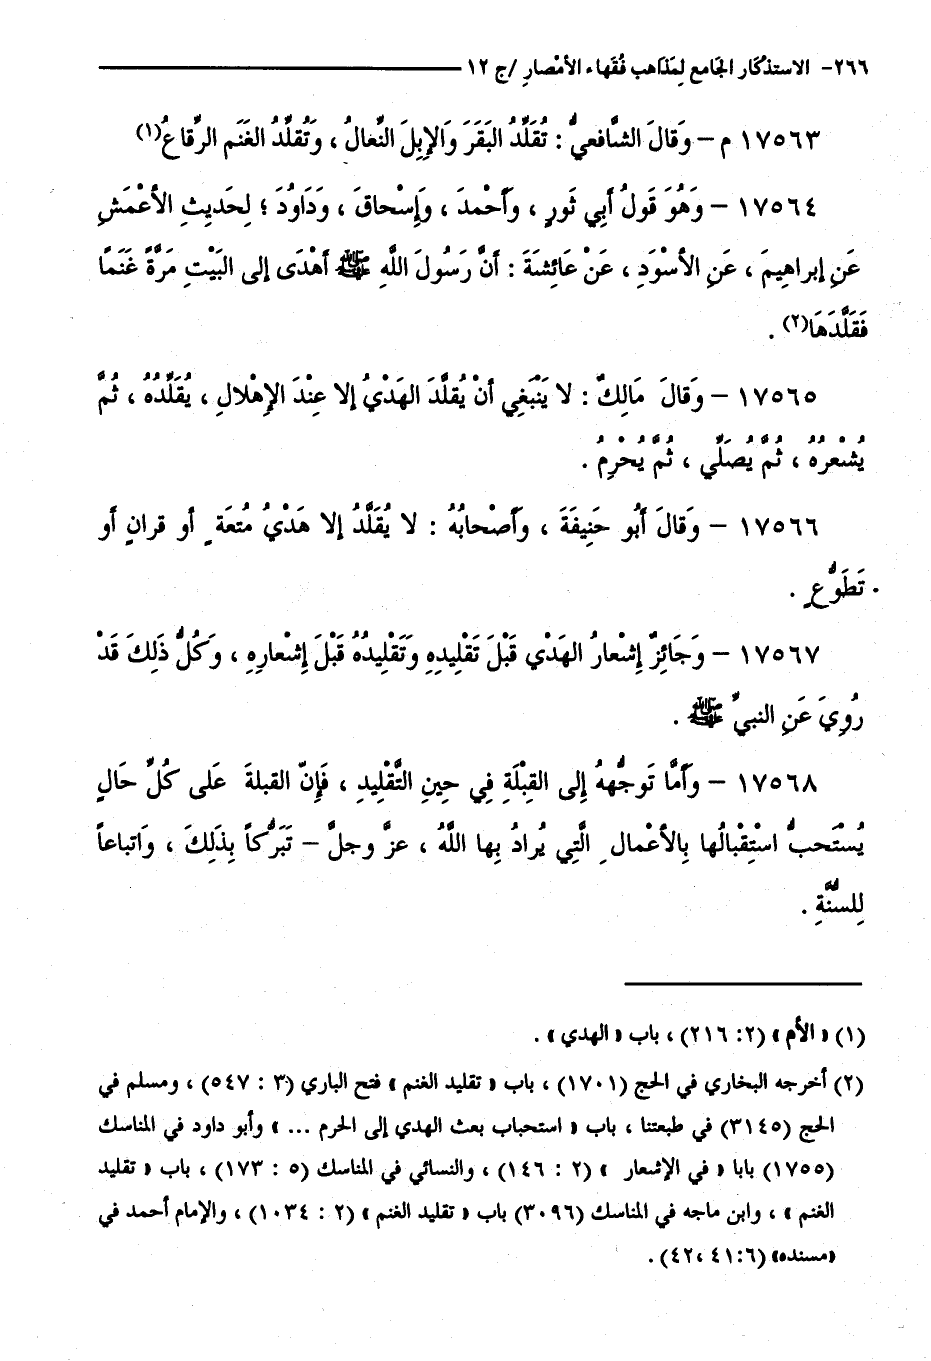 ٢٦٦- الاستذْكَار الجَامع لِمَذَاهب فُقَهاء الأمْصارِ /ج ١٢
١٧٥٦٣ م – وَقالَ الشَّافعيُّ : تُقَلَّدُ البَقَرَ وَالإِبِلَ النِّعالُ ، وَتُقلَّدُ الغَنَم الرِّقاعُ(١)
١٧٥٦٤ – وَهُوَ قَولُ أَبِي ثَورٍ ، وأَحْمدَ ، وَإِسْحاقَ ، وَدَاوُدَ ؛ لِحَديثِ الأعْمَشِ
عَنِ إبراهِيمَ ، عَنِ الأسْوَدِ ، عَنْ عَائِشةَ : أنَّ رَسُولَ اللَّهِ ﷺ أهْدَى إلى البَيْتِ مَرَّةً غَنَمًا
فَقَلَّدَهَا(٢) .
١٧٥٦٥ – وَقالَ مَالِكٌ : لا يَنْبَغِي أنْ يُقلَّدَ الهَدْيُ إلا عِنْدَ الإِهْلالِ ، يُقَلِّدُهُ ، ثُمَّ
يُشْعرُهُ ، ثُمَّ يُصَلِّي ، ثُمَّ يُحْرِمُ .
١٧٥٦٦ – وَقالَ أَبُو حَنِيفَةَ ، وَأَصْحابُهُ : لا يُقَلَّدُ إلا هَدْيُ مُتعَةٍ أو قرانٍ أو
تَطَوُّعٍ .
١٧٥٦٧ – وَجَائِزٌ إشْعارُ الهَدْي قَبْلَ تَقْلِيدِهِ وَتَقْلِيدُهُ قَبْلَ إشْعارِهِ ، وَكُلُّ ذَلِكَ قَدْ
رُوِيَ عَنِ النبيِّ ﷺ .
١٧٥٦٨ – وَأَمَّا تَوجُّههُ إلى القِبْلَةِ فِي حِينِ التَّقْلِيدِ ، فَإِنّ القبلةَ عَلى كُلِّ حَالٍ
يُسْتَحبُّ اسْتِقْبالُها بِالأعْمالِ الَّتِي يُرادُ بِها اللَّهُ ، عزَّ وجلَّ – تَبَرُّكاً بِذَلِكَ ، وَاتباعاً
لِلسُّنَّةِ .
(١) « الأم » (٢: ٢١٦) ، باب « الهدي » .
(٢) أخرجه البخاري في الحج (١٧٠١) ، باب « تقليد الغنم » فتح الباري (٣ : ٥٤٧) ، ومسلم في
الحج (٣١٤٥) في طبعتنا ، باب « استحباب بعث الهدي إلى الحرم ... » وأبو داود في المناسك
(١٧٥٥) بابا « في الإشعار » (٢ : ١٤٦) ، والنسائي في المناسك (٥ : ١٧٣) ، باب « تقليد
الغنم » ، وابن ماجه في المناسك (٣٠٩٦) باب « تقليد الغنم » (٢ : ١٠٣٤) ، والإمام أحمد في
«مسنده» (٤١:٦ ،٤٢) .